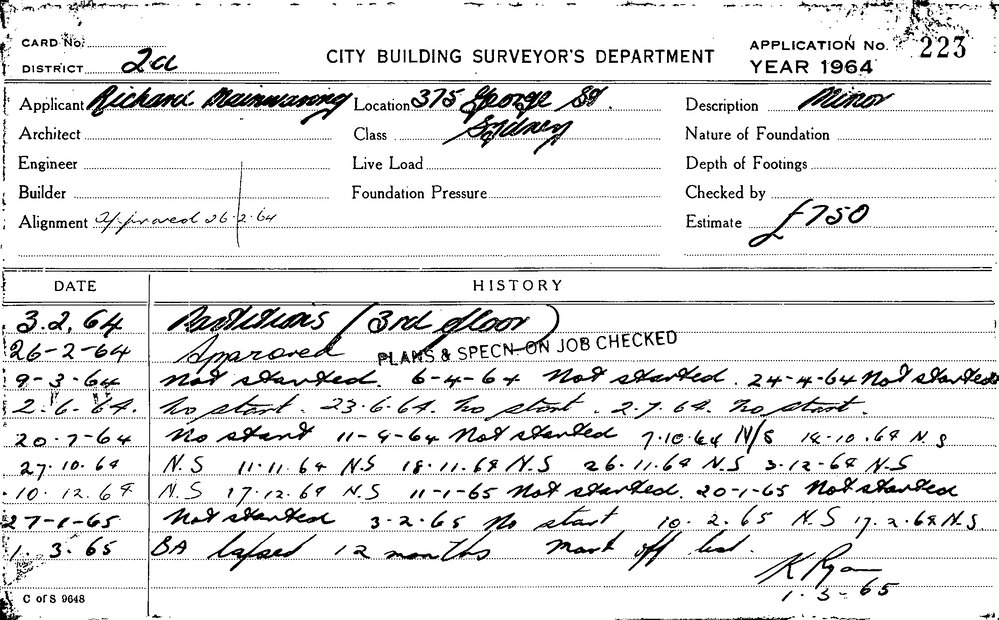 CARD No.
DISTRICT 2a
CITY BUILDING SURVEYOR'S DEPARTMENT
APPLICATION No. 223
YEAR 1964
Applicant Richard Mainwaring Location 375 George St. Description Minor
Architect Class Sydney Nature of Foundation
Engineer Live Load Depth of Footings
Builder Foundation Pressure Checked by
Alignment Approved 26.2.64 Estimate £750
DATE HISTORY
3.2.64 Partitions (3rd floor)
26-2-64 Approved PLANS & SPECN. ON JOB CHECKED
9-3-64 Not started. 6-4-64 Not started. 24-4-64 Not started
2.6.64. No start. 23.6.64. No start. 2.7.64. No start.
20.7-64 No start 11-9-64 Not started 7.10.64 N/S 14.10.64 N.S
27.10.64 N.S 11.11.64 N.S 18.11.64 N.S 26.11.64 N.S 3-12-64 N.S
10.12.64 N.S 17.12.64 N.S 11-1-65 Not started. 20-1-65 Not started
27-1-65 Not started 3-2-65 No start 10.2.65 N.S 17.2.64 N.S.
1.3.65 BA lapsed 12 months Mark off list.
K Ryan
1-3-65
C of S 9648